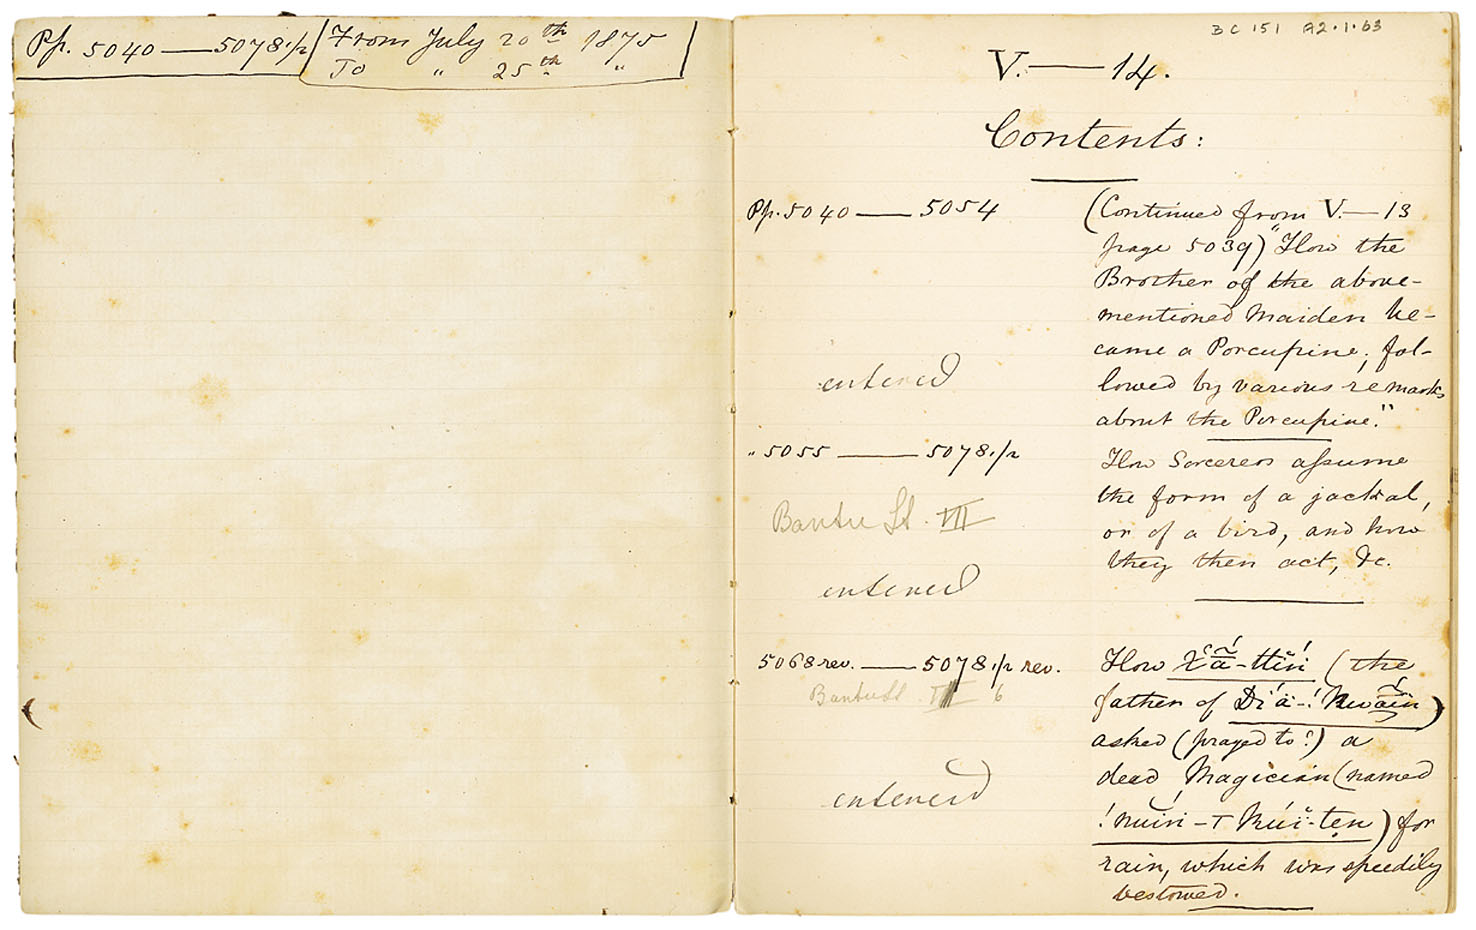 Pp. 5040 — 5078 1/2
From July 20th 1875
To " 25th "
BC 151 A2.1.63
V. — 14.
Contents:
Pp. 5040 — 5054
(Continued from V. — 13
page 5039) "How the
Brother of the above-
mentioned Maiden be-
came a Porcupine; fol-
lowed by various remarks
about the Porcupine."
entered
" 5055 — 5078 1/2
How Sorcerers assume
the form of a jackal,
or of a bird, and how
they then act, &c.
Bantu St. VII
entered
5068 rev. — 5078 1/2 rev.
How (the
father of
asked (prayed to?) a
dead Magician (named
) for
rain, which was speedily
bestowed.
Bantu St. 6
entered